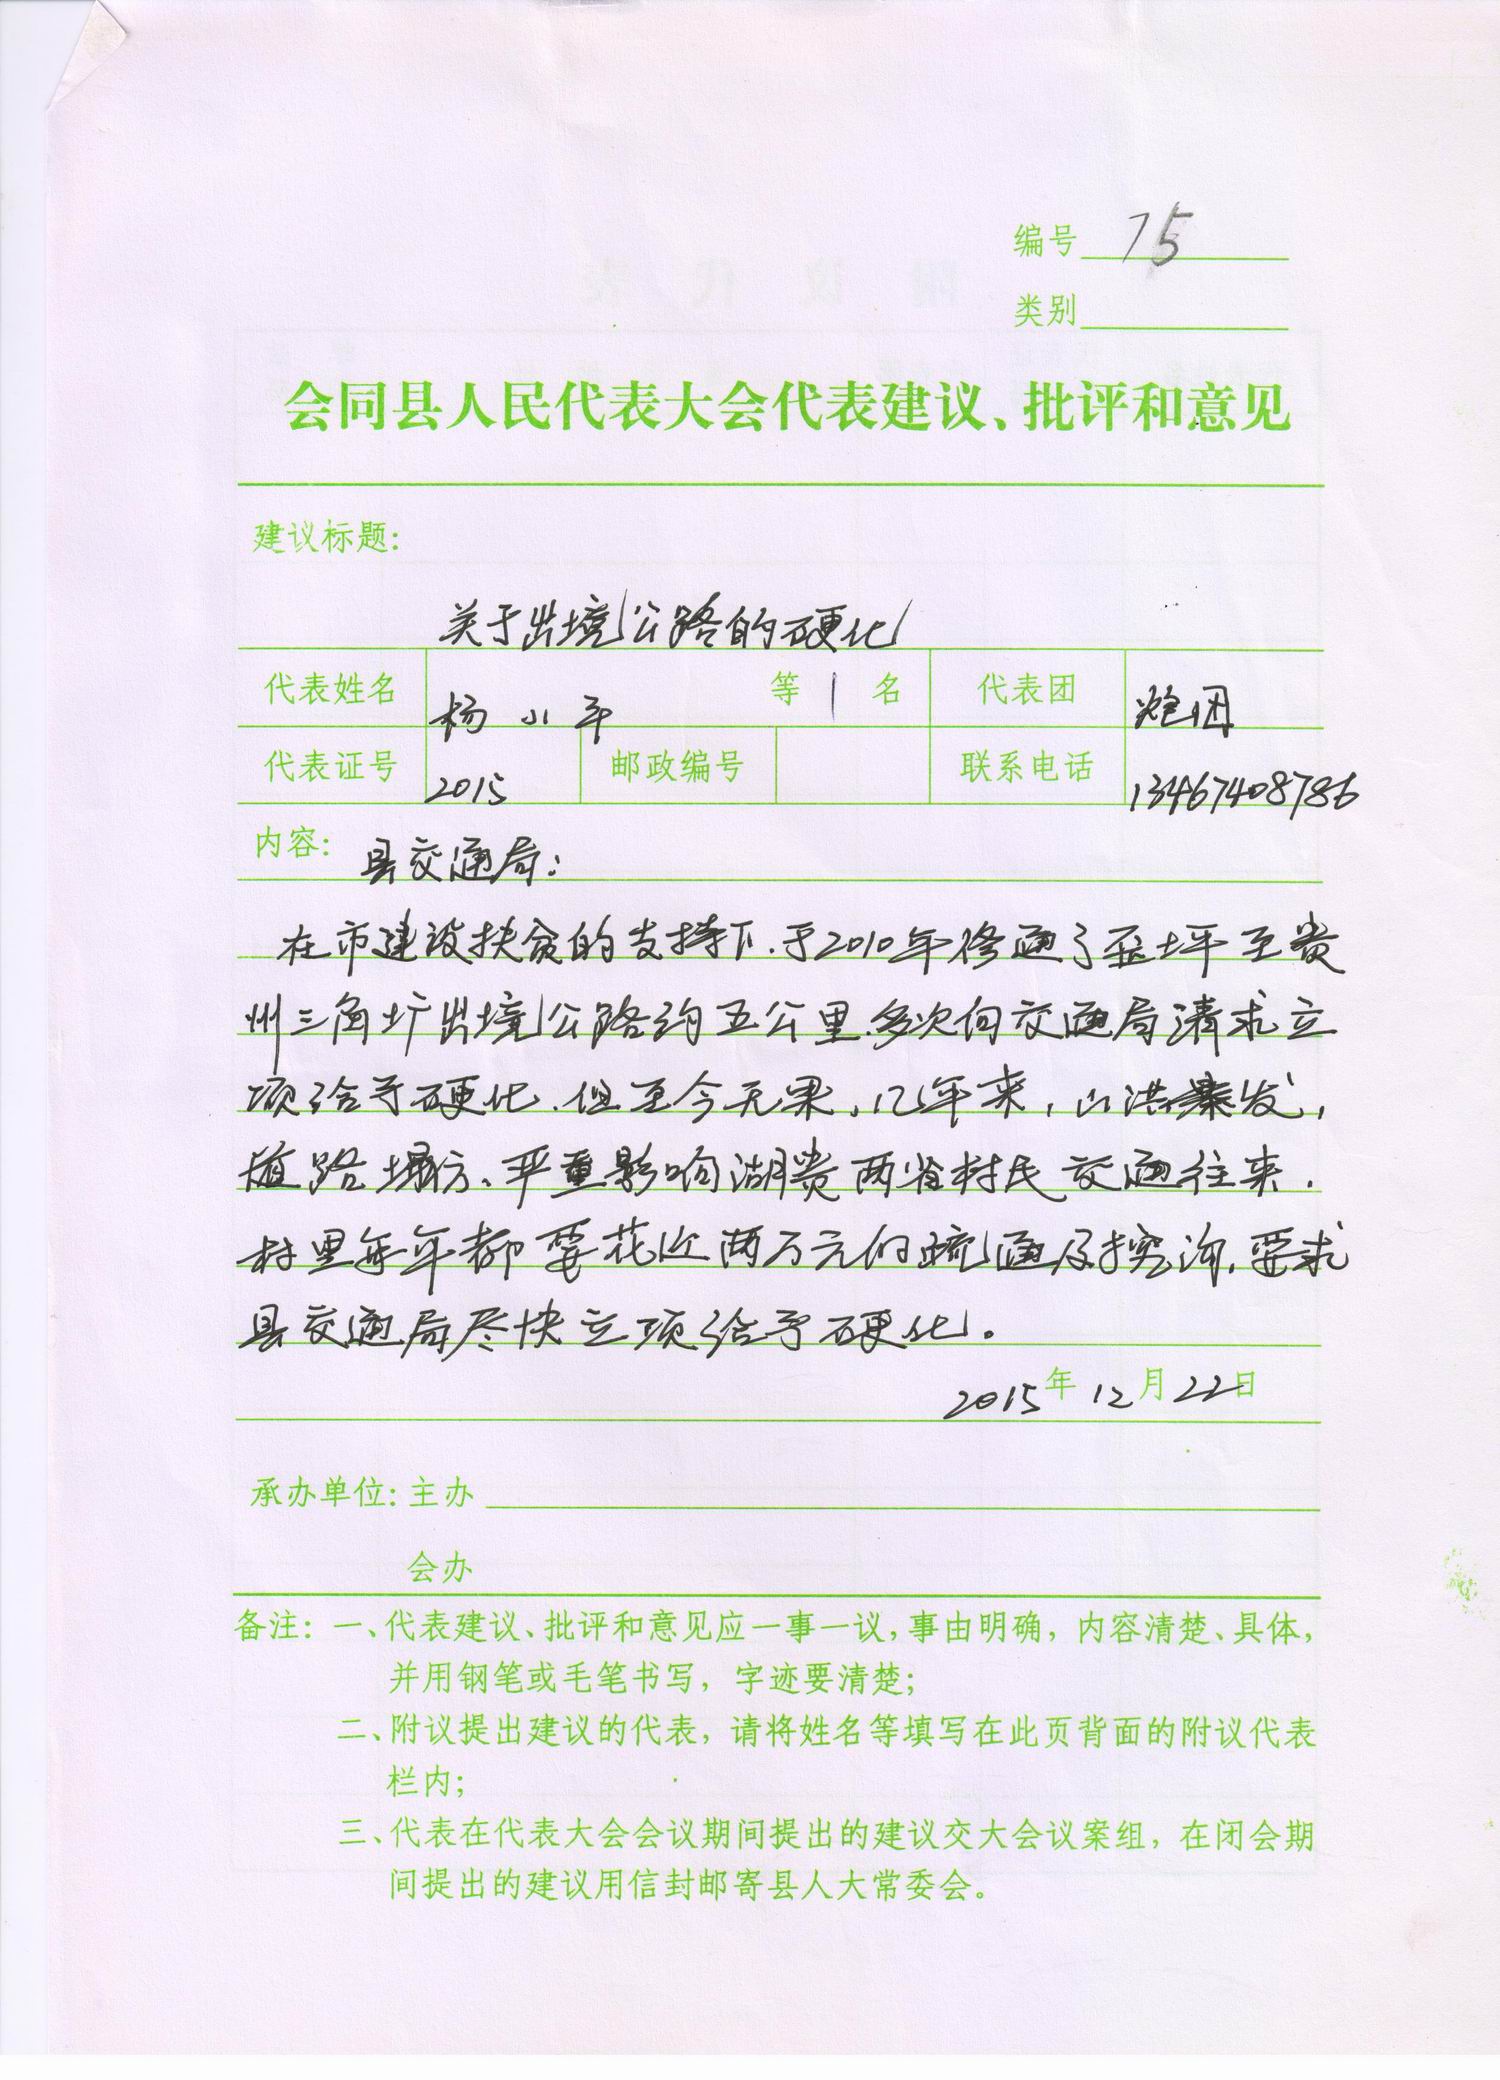 编号 75
类别
会同县人民代表大会代表建议、批评和意见
建议标题:
关于出境公路的硬化
代表姓名 杨小平 等 1 名 代表团 炮团
代表证号 2015 邮政编号 联系电话 13467408786
内容: 县交通局:
在市建设扶贫的支持下.于2010年修通了 坪至贵
州三角圹出境公路约五公里.多次向交通局请求立
项给予硬化.但至今无果,几年来,山洪暴发,
道路塌方、严重影响湖贵两省村民交通往来.
村里每年都要花近两万元的疏通及 沟,要求
县交通局尽快立项给予硬化。
2015年12月22日
承办单位: 主办
会办
备注: 一、代表建议、批评和意见应一事一议,事由明确,内容清楚、具体,
并用钢笔或毛笔书写,字迹要清楚;
二、附议提出建议的代表,请将姓名等填写在此页背面的附议代表
栏内;
三、代表在代表大会会议期间提出的建议交大会议案组,在闭会期
间提出的建议用信封邮寄县人大常委会。